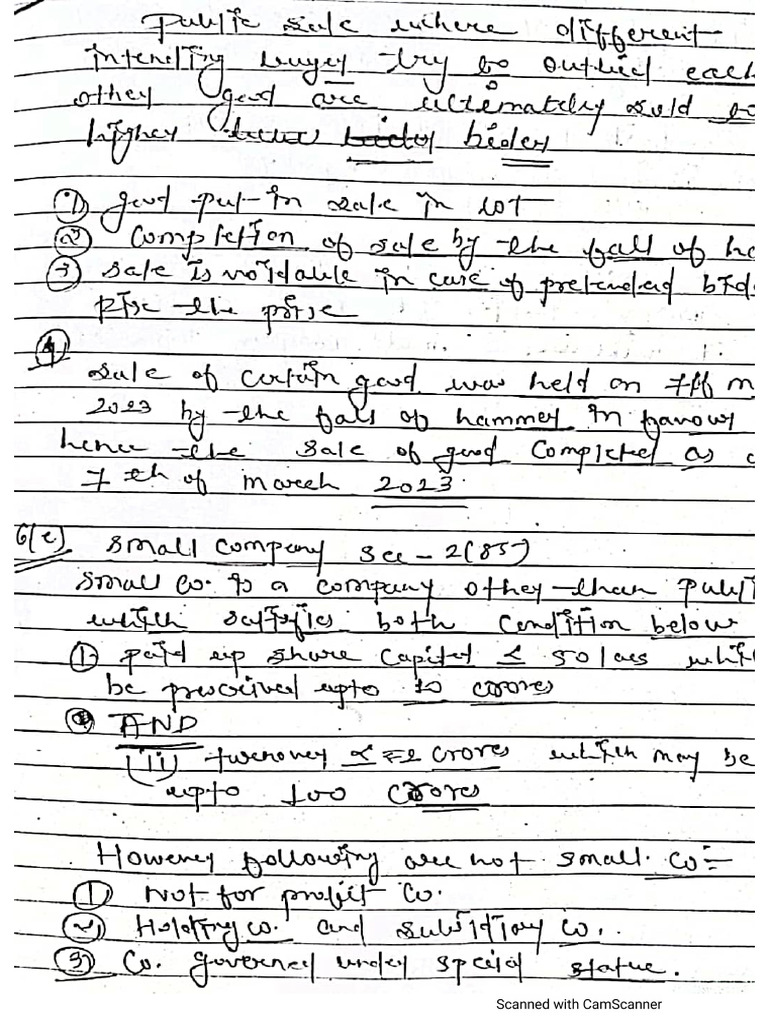 Public sale where different
intending buyer try to outbid each
other good are ultimately sold to
higher bider
① good put in sale in lot
② completion of sale by the fall of ha
③ sale is voidable in case of pretended bid
rise the prise
④
sale of certain good was held on 7th m
2023 by the fall of hammer in favour
hence the sale of good completed as
7th of march 2023
6(c) Small company sec - 2(85)
Small co. is a company other than publi
which satisfies both condition below
① paid up share capital ≤ 50 lacs whi
be prescribed upto 10 crores
AND
(ii) turnover ≤ 2 crores which may be
upto 100 crores
However following are not small co:-
① Not for profit co.
② Holding co. and subsidiary co.
③ Co. governed under special statue.
Scanned with CamScanner